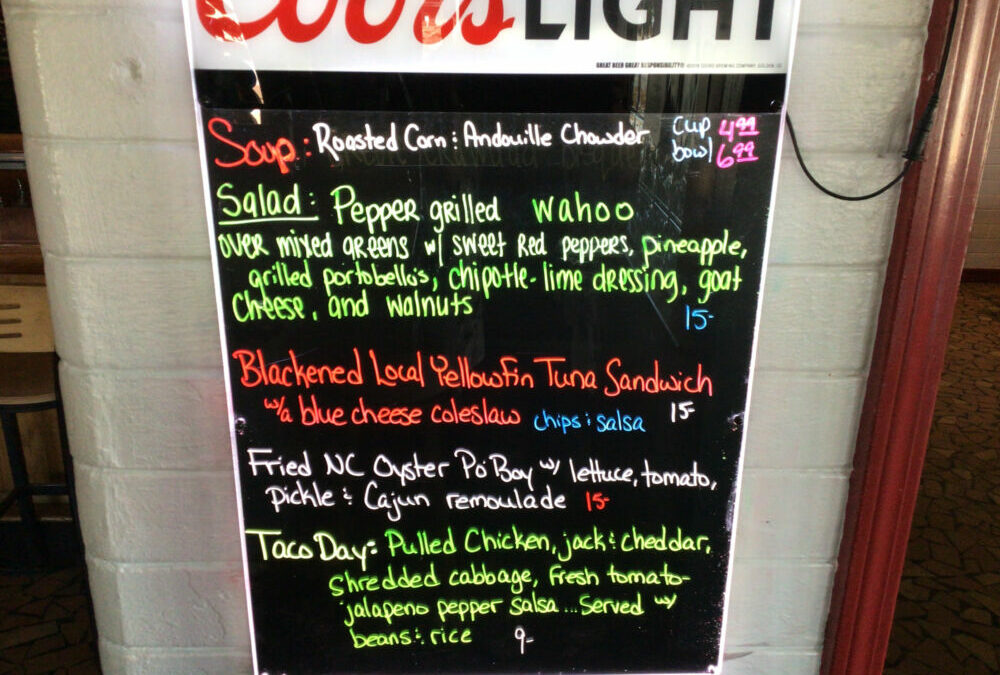 Coors LIGHT
GREAT BEER GREAT RESPONSIBILITY®
Soup: Roasted Corn & Andouille Chowder cup 4.99
bowl 6.99
Salad: Pepper grilled wahoo
over mixed greens w/ sweet Red peppers, pineapple,
grilled portobello's, chipotle-lime dressing, goat
cheese, and walnuts 15-
Blackened Local Yellowfin Tuna Sandwich
w/a blue cheese coleslaw chips & salsa 15-
Fried NC Oyster Po'Boy w/ lettuce, tomato,
pickle & Cajun remoulade 15-
Taco Day: Pulled Chicken, jack & cheddar,
shredded cabbage, fresh tomato-
jalapeno pepper salsa... Served w/
beans & rice 9-